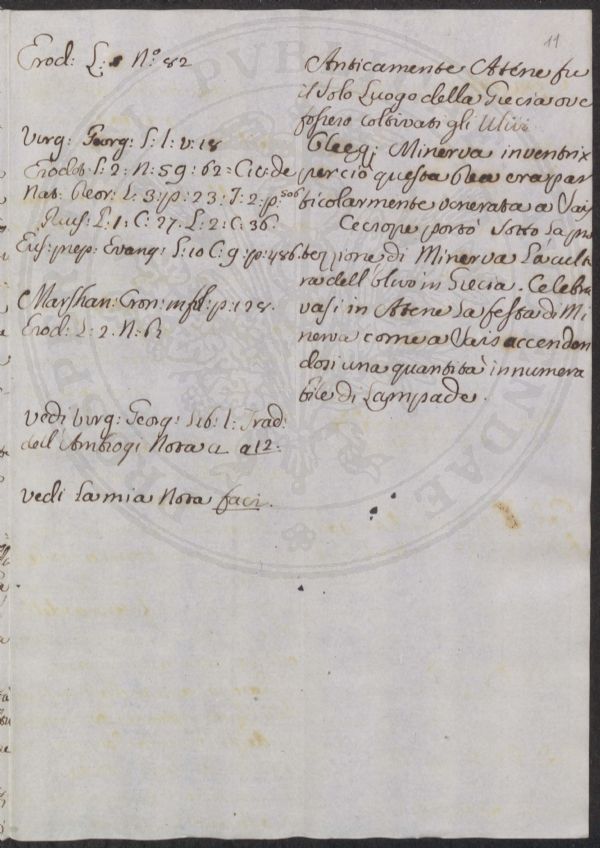 11
Erod: L: 5 N.º 82
Virg: Georg: L: I: v: 18
Erodot: L: 2: N: 59: 62 = Cic: de
Nat: Deor: L: 3: p: 23: T: 2: p. 506
Paus: L: 1: C: 27. L: 2: C: 36.
Eus: prep: Evang: L: 10 C: 9: p: 486.
Marshan: Cron: in fol: p: 128.
Erod: L: 2. N: 62
vedi Virg: Georg: Lib: I: Trad:
dell'Ambrogi Nota a 12:
vedi la mia Nota faci.
Anticamente Atene fu
il solo Luogo della Grecia ove
fossero coltivati gli Ulivi
Oleeq; Minerva inventrix
perciò questa Dea era par
ticolarmente venerata a Vais
Cecrope portò sotto la pro
tezzione di Minerva la cultu
ra dell'olivo in Grecia. Celebra
vasi in Atene la festa di Mi
nerva come a Vais accenden
dosi una quantità innumera
bile di Lampade.